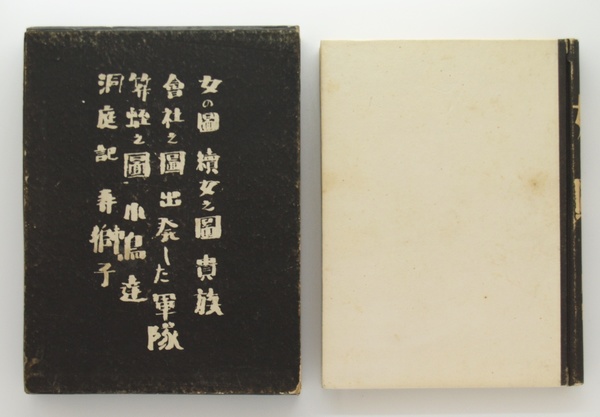 女の圖 續女之圖 貴族
會社之圖 出発した軍隊
笄蛭之圖 小鳥達
洞庭記 獅子